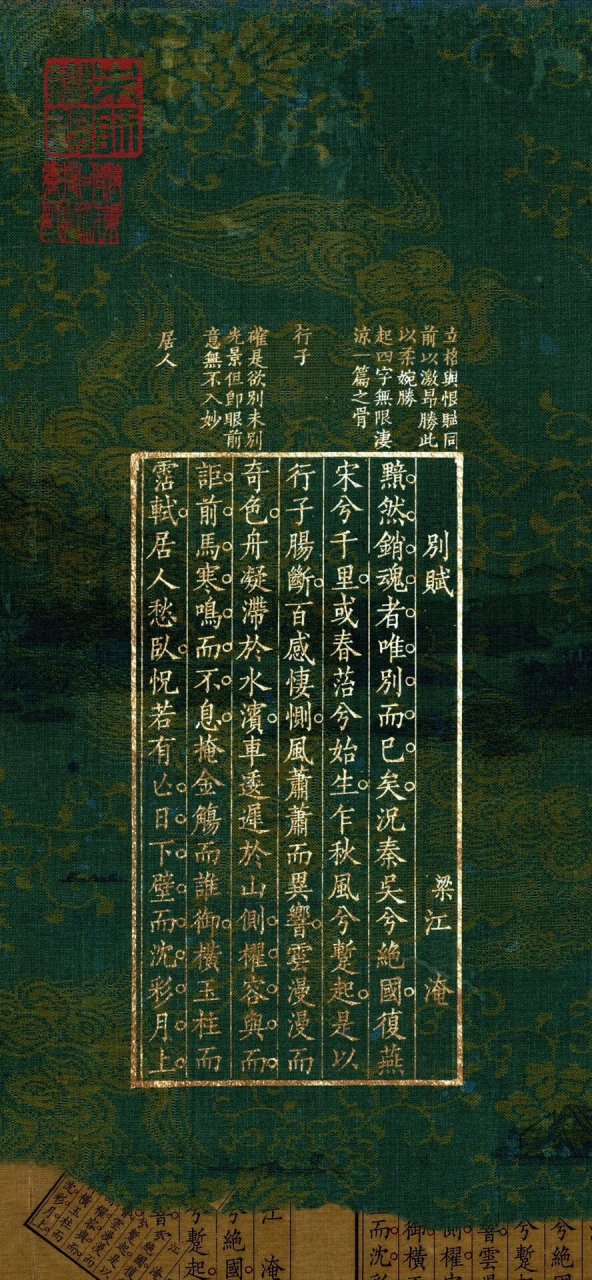 立格與恨賦同
前以激昂勝此
以柔婉勝
起四字無限淒
涼一篇之骨
行子
確是欲別未別
光景但即眼前
意無不入妙
居人
別賦 梁江淹
黯然銷魂者唯別而已矣況秦吳兮絕國復燕
宋兮千里或春苔兮始生乍秋風兮蹔起是以
行子腸斷百感悽惻風蕭蕭而異響雲漫漫而
奇色舟凝滯於水濱車逶遲於山側櫂容與而
詎前馬寒鳴而不息掩金觴而誰御橫玉柱而
霑軾居人愁臥怳若有亡日下壁而沈彩月上
兮絕
兮蹔
雲
側櫂
御橫
而沈
江淹
兮絕國
兮蹔起
沈彩月上